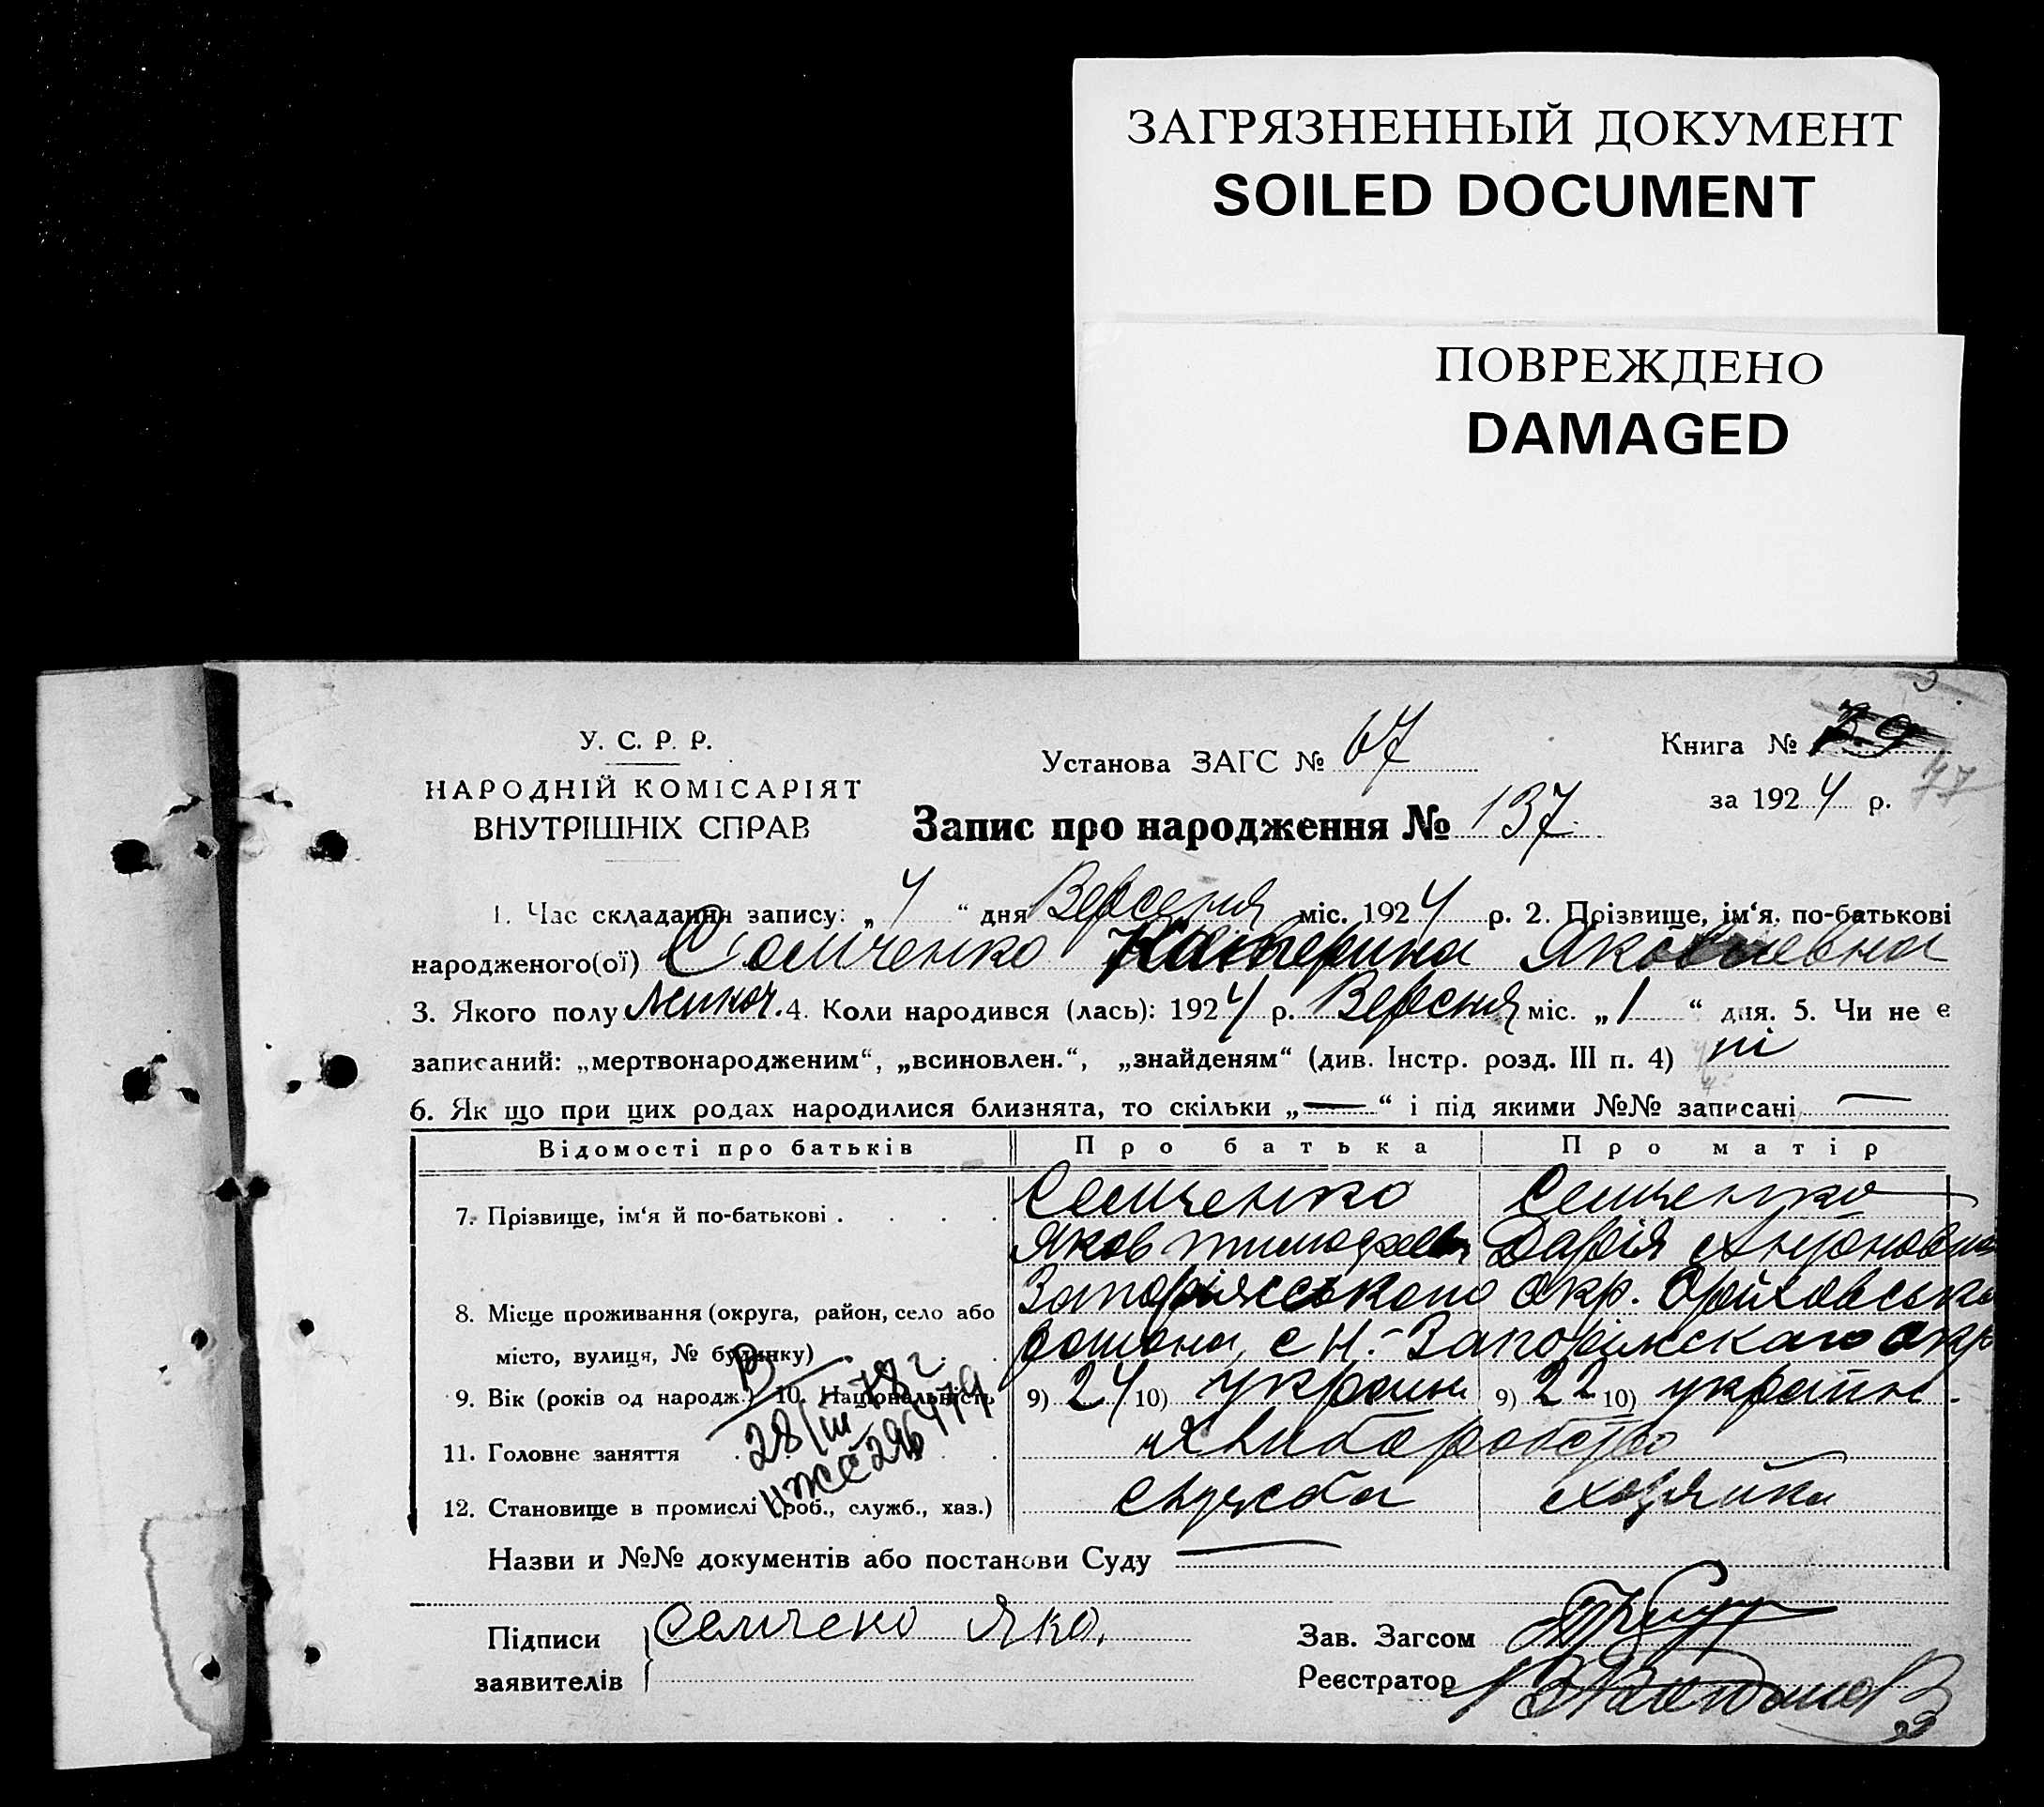 ЗАГРЯЗНЕННЫЙ ДОКУМЕНТ
SOILED DOCUMENT
ПОВРЕЖДЕНО
DAMAGED
У. С. Р. Р.
НАРОДНІЙ КОМІСАРІЯТ
ВНУТРІШНІХ СПРАВ
Установа ЗАГС № 67
Книга №
77
за 1924 р.
Запис про народження № 137
1. Час складання запису: „4“ дня Версеня міс. 1924 р. 2. Прізвище, ім‘я, по-батькові
народженого(ої) Семченко Катерина Яковлевна
3. Якого полу жіноч. 4. Коли народився (лась): 1924 р. Версня міс. „1“ дня. 5. Чи не є
записаний: „мертвонародженим“, „всиновлен.“, „знайденям“ (див. Інстр. розд. III п. 4) ні
6. Як що при цих родах народилися близнята, то скільки „—“ і під якими №№ записані —
Відомості про батьків Про батька Про матір
7. Прізвище, ім‘я й по-батькові Семченко Семченко
Яков Тимофеев Дарія Антоновна
8. Місце проживання (округа, район, село або Запоріжського окр. Оріховсько
місто, вулиця, № будинку) района, с Н.-Запоріжскаго окр
9. Вік (років од народж.) 10. Національність 9) 24 10) україн 9) 22 10) україн.
28/III-78г
11. Головне заняття Хліборобство
12. Становище в промислі (роб., служб., хаз.) служба хозяйка
Назви и №№ документів або постанови Суду —
Підписи Семчено Яко.
заявителів
Зав. Загсом
Реєстратор